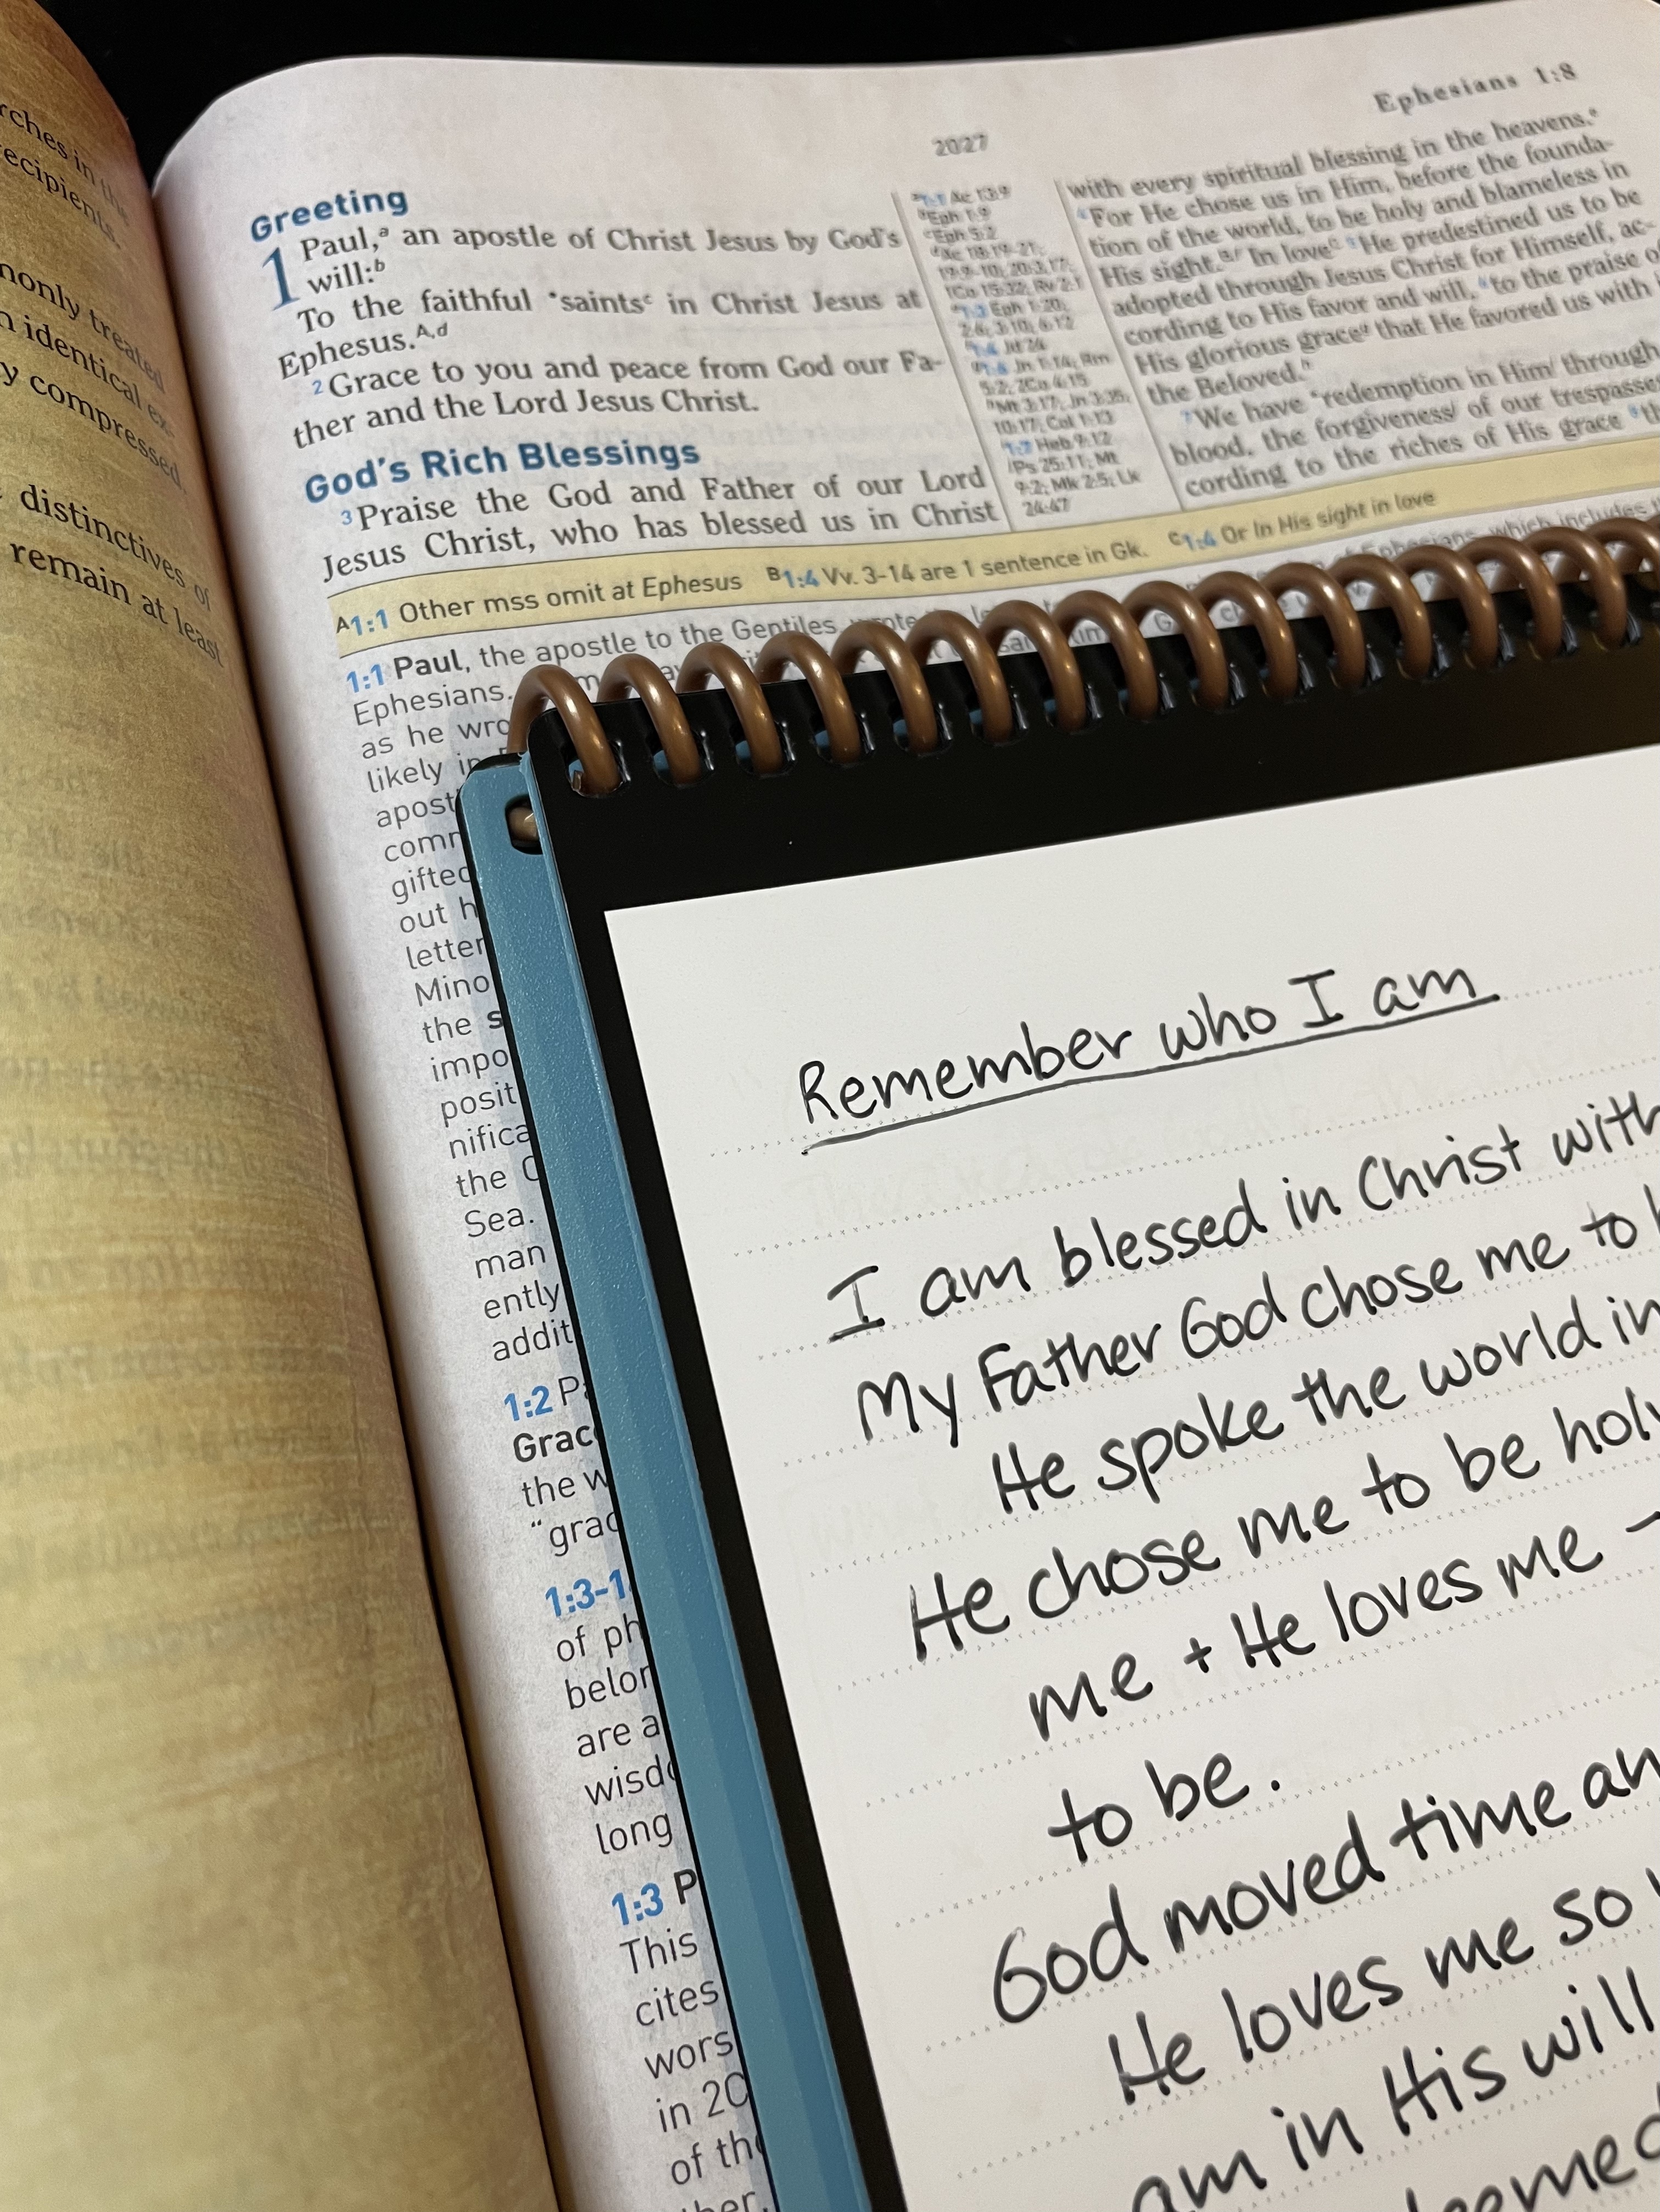 rches in the
recipients.
monly treated
n identical ex-
y compressed.
distinctives of
remain at least
2027
Ephesians 1:8
Greeting
1 Paul,a an apostle of Christ Jesus by God's
will:b
To the faithful *saintsc in Christ Jesus at
Ephesus.A,d
2 Grace to you and peace from God our Fa-
ther and the Lord Jesus Christ.
God's Rich Blessings
3 Praise the God and Father of our Lord
Jesus Christ, who has blessed us in Christ
a1:1 Ac 13:9
bEph 1:9
cEph 5:2
dAc 18:19-21;
19:9-10; 20:3,17;
1Co 15:32; Rv 2:1
e1:3 Eph 1:20;
2:6; 3:10; 6:12
f1:4 Jd 24
g1:6 Jn 1:14; Rm
5:2; 2Co 4:15
hMt 3:17; Jn 3:35;
10:17; Col 1:13
i1:7 Heb 9:12
jPs 25:11; Mt
9:2; Mk 2:5; Lk
24:47
with every spiritual blessing in the heavens.e
4 For He chose us in Him, before the founda-
tion of the world, to be holy and blameless in
His sight.B,f In loveC 5 He predestined us to be
adopted through Jesus Christ for Himself, ac-
cording to His favor and will, 6 to the praise of
His glorious graceg that He favored us with
the Beloved.h
7 We have *redemption in Himi through
blood, the forgivenessj of our trespasses
cording to the riches of His grace 8 th
A1:1 Other mss omit at Ephesus B1:4 Vv. 3-14 are 1 sentence in Gk. C1:4 Or In His sight in love
1:1 Paul, the apostle to the Gentiles, wrote
Ephesians, which includes
Ephesians.
as he wro
likely in
apost
comm
gifted
out h
letter
Mino
the s
impo
posit
nifica
the C
Sea.
man
ently
addit
1:2 Pa
Grace
the w
"grac
1:3-1
of ph
belon
are a
wisdo
long
1:3 P
This
cites
wors
in 2C
of the
ther.
Remember who I am
I am blessed in Christ with
My Father God chose me to
He spoke the world in
He chose me to be holy
me + He loves me -
to be.
God moved time an
He loves me so
am in His will
eemed